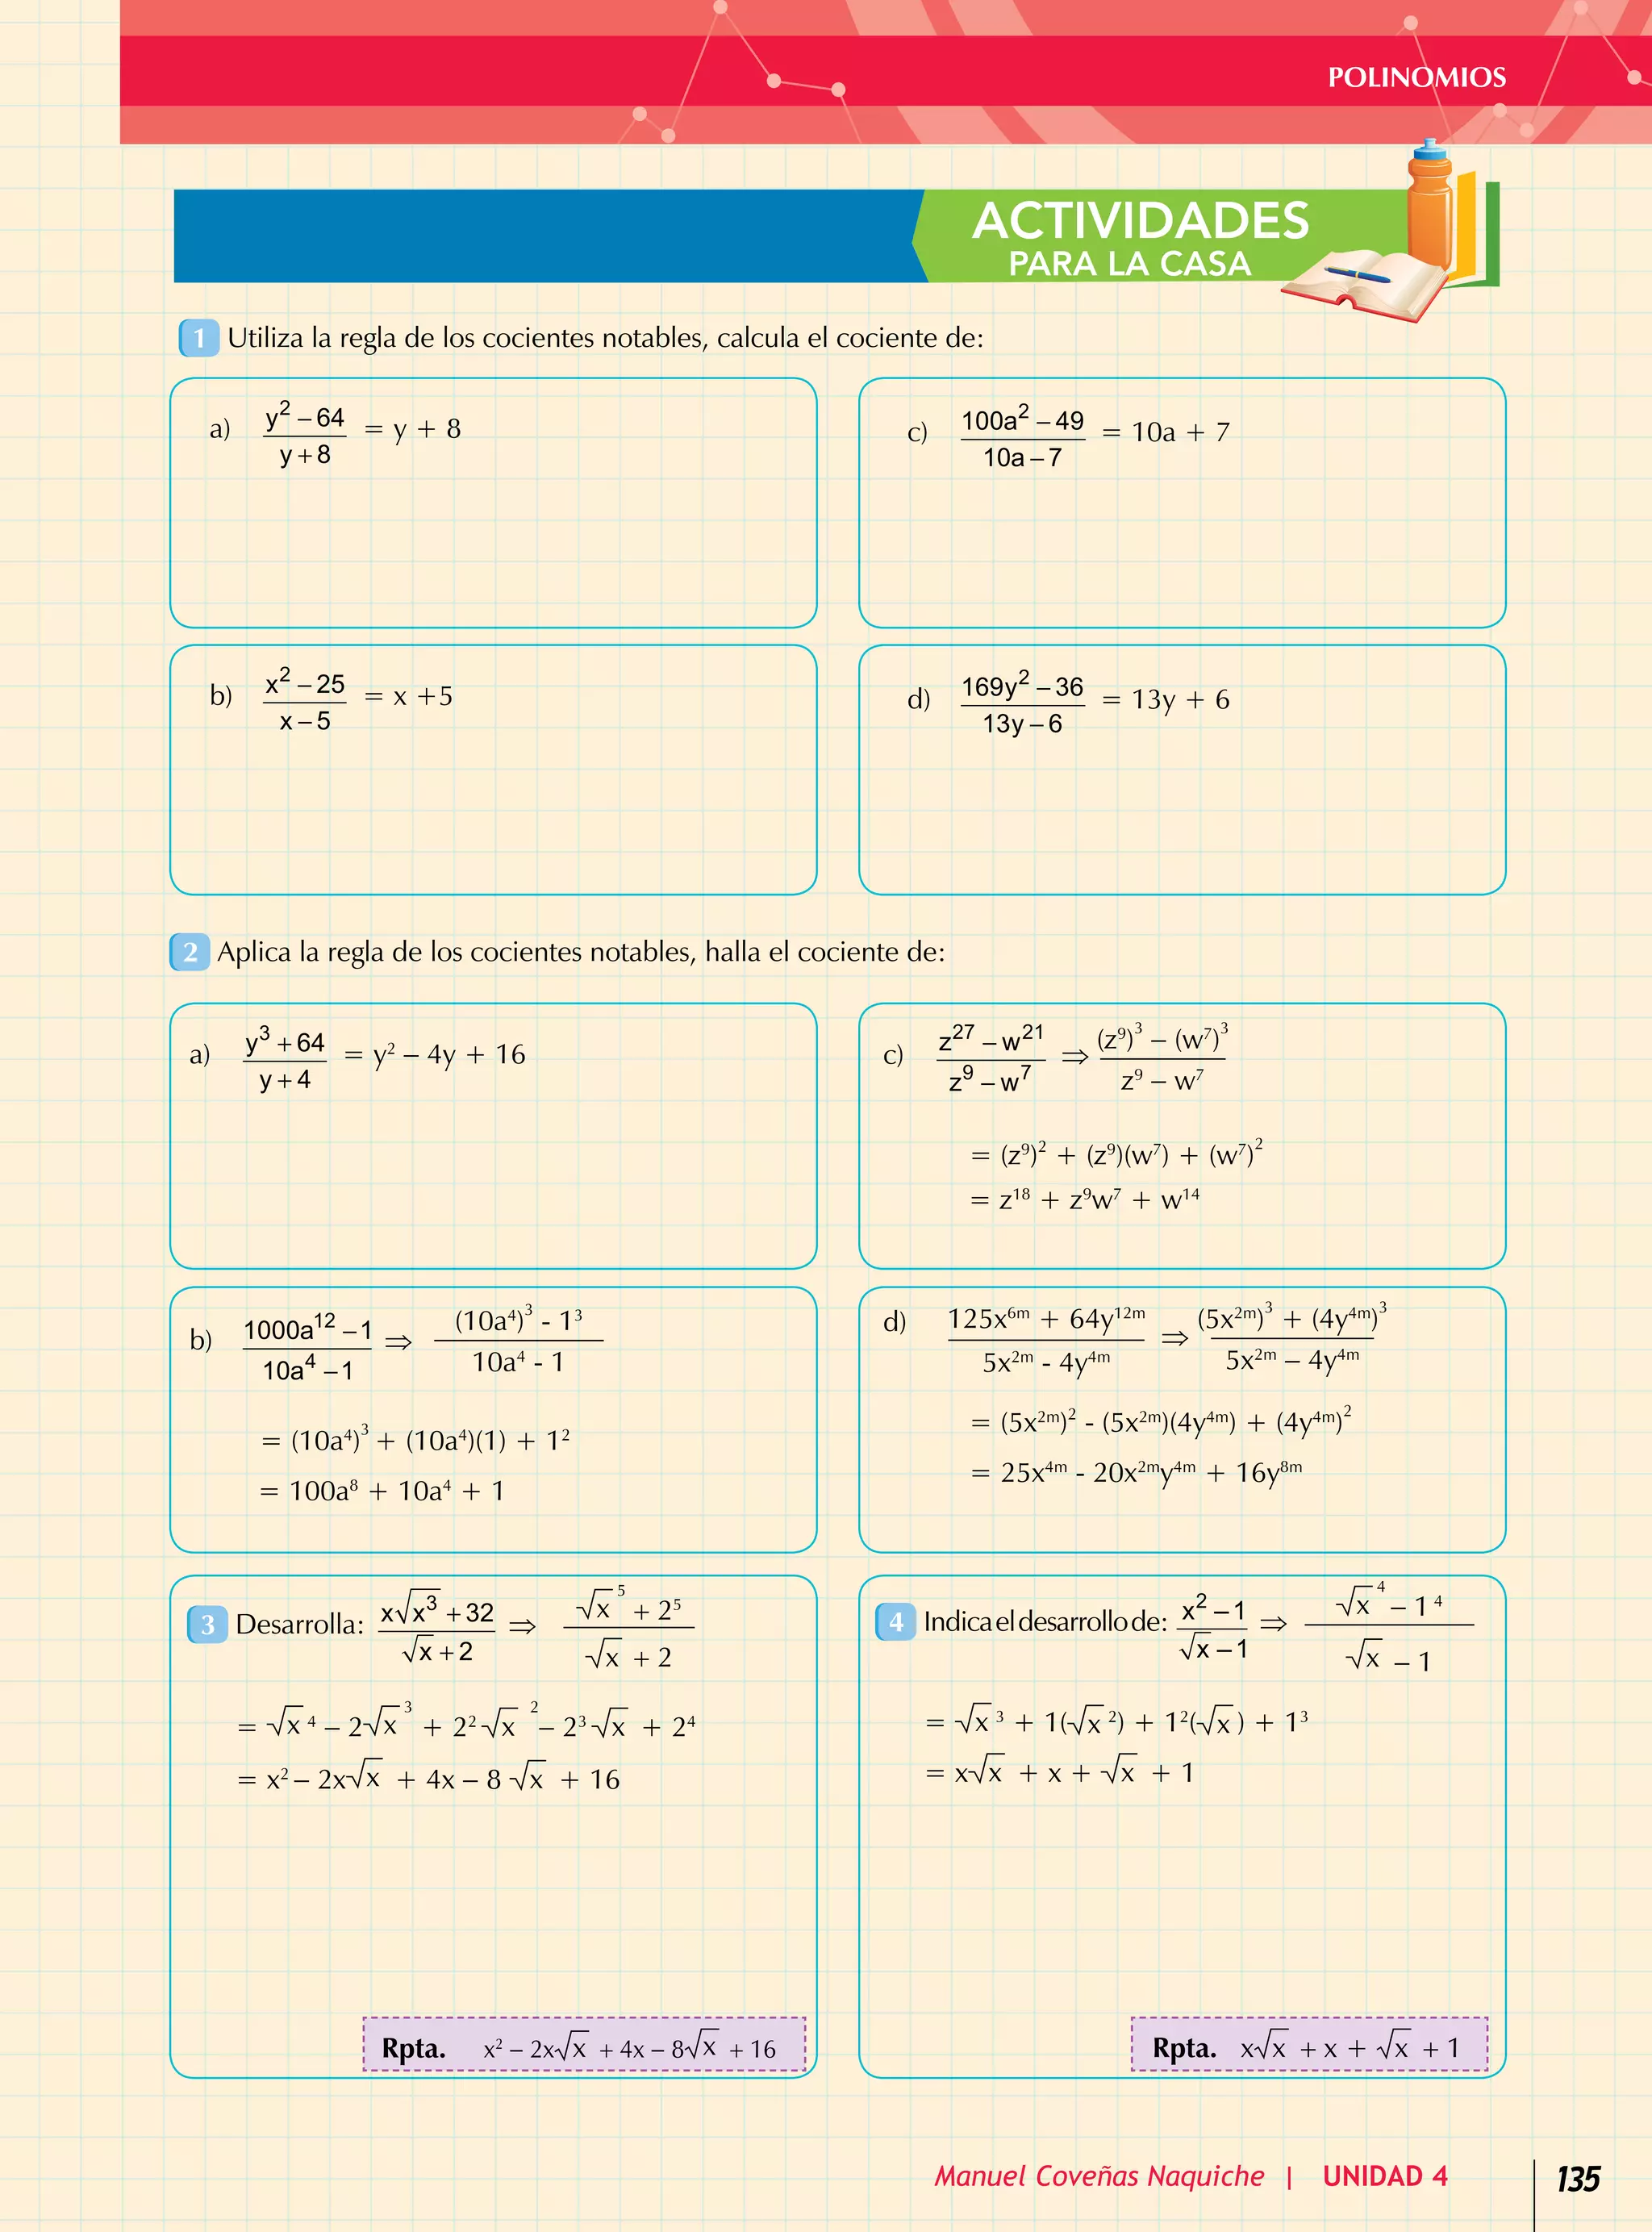 POLINOMIOS
ACTIVIDADES
PARA LA CASA
1 Utiliza la regla de los cocientes notables, calcula el cociente de:
a) (y² – 64)/(y + 8) = y + 8
c) (100a² – 49)/(10a – 7) = 10a + 7
b) (x² – 25)/(x – 5) = x +5
d) (169y² – 36)/(13y – 6) = 13y + 6
2 Aplica la regla de los cocientes notables, halla el cociente de:
a) (y³ + 64)/(y + 4) = y² – 4y + 16
c) (z²⁷ – w²¹)/(z⁹ – w⁷) ⇒ ((z⁹)³ – (w⁷)³)/(z⁹ – w⁷)
= (z⁹)² + (z⁹)(w⁷) + (w⁷)²
= z¹⁸ + z⁹w⁷ + w¹⁴
b) (1000a¹² – 1)/(10a⁴ – 1) ⇒ ((10a⁴)³ - 1³)/(10a⁴ - 1)
= (10a⁴)³ + (10a⁴)(1) + 1²
= 100a⁸ + 10a⁴ + 1
d) (125x⁶ᵐ + 64y¹²ᵐ)/(5x²ᵐ - 4y⁴ᵐ) ⇒ ((5x²ᵐ)³ + (4y⁴ᵐ)³)/(5x²ᵐ – 4y⁴ᵐ)
= (5x²ᵐ)² - (5x²ᵐ)(4y⁴ᵐ) + (4y⁴ᵐ)²
= 25x⁴ᵐ - 20x²ᵐy⁴ᵐ + 16y⁸ᵐ
3 Desarrolla: (x√x³ + 32)/(√x + 2) ⇒ (√x⁵ + 2⁵)/(√x + 2)
= √x⁴ – 2√x³ + 2²√x² – 2³√x + 2⁴
= x² – 2x√x + 4x – 8√x + 16
Rpta. x² – 2x√x + 4x – 8√x + 16
4 Indica el desarrollo de: (x² – 1)/(√x – 1) ⇒ (√x⁴ – 1⁴)/(√x – 1)
= √x³ + 1(√x²) + 1²(√x) + 1³
= x√x + x + √x + 1
Rpta. x√x + x + √x + 1
Manuel Coveñas Naquiche | UNIDAD 4 135